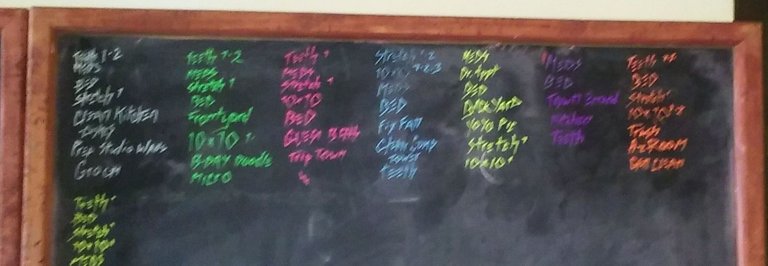 Teeth 1-2
Meds
BED
Stretch 1
Clean Kitchen
Prep Studio
Teeth 1-2
MEDS
Stretch 1
BED
Front yard
10x10 1-
B-DAY Doodle
MICRO
Teeth 1
MEDS
Stretch 1
10x10
BED
Trip Town
Stretch 1 2
10x10 1-2-3
Meds
BED
Fix Fan
Clean Comp
Tower
Teeth
MEDS
Dr. Appt
BED
Back Yard
YOYO Pix
Stretch 1
10x10 1
MEDS
BED
Town Errand
Kitchen
Teeth
Teeth
BED
Stretch
10x10
Trash
Teeth 1
BED
Stretch 1
10x10 1
MEDS